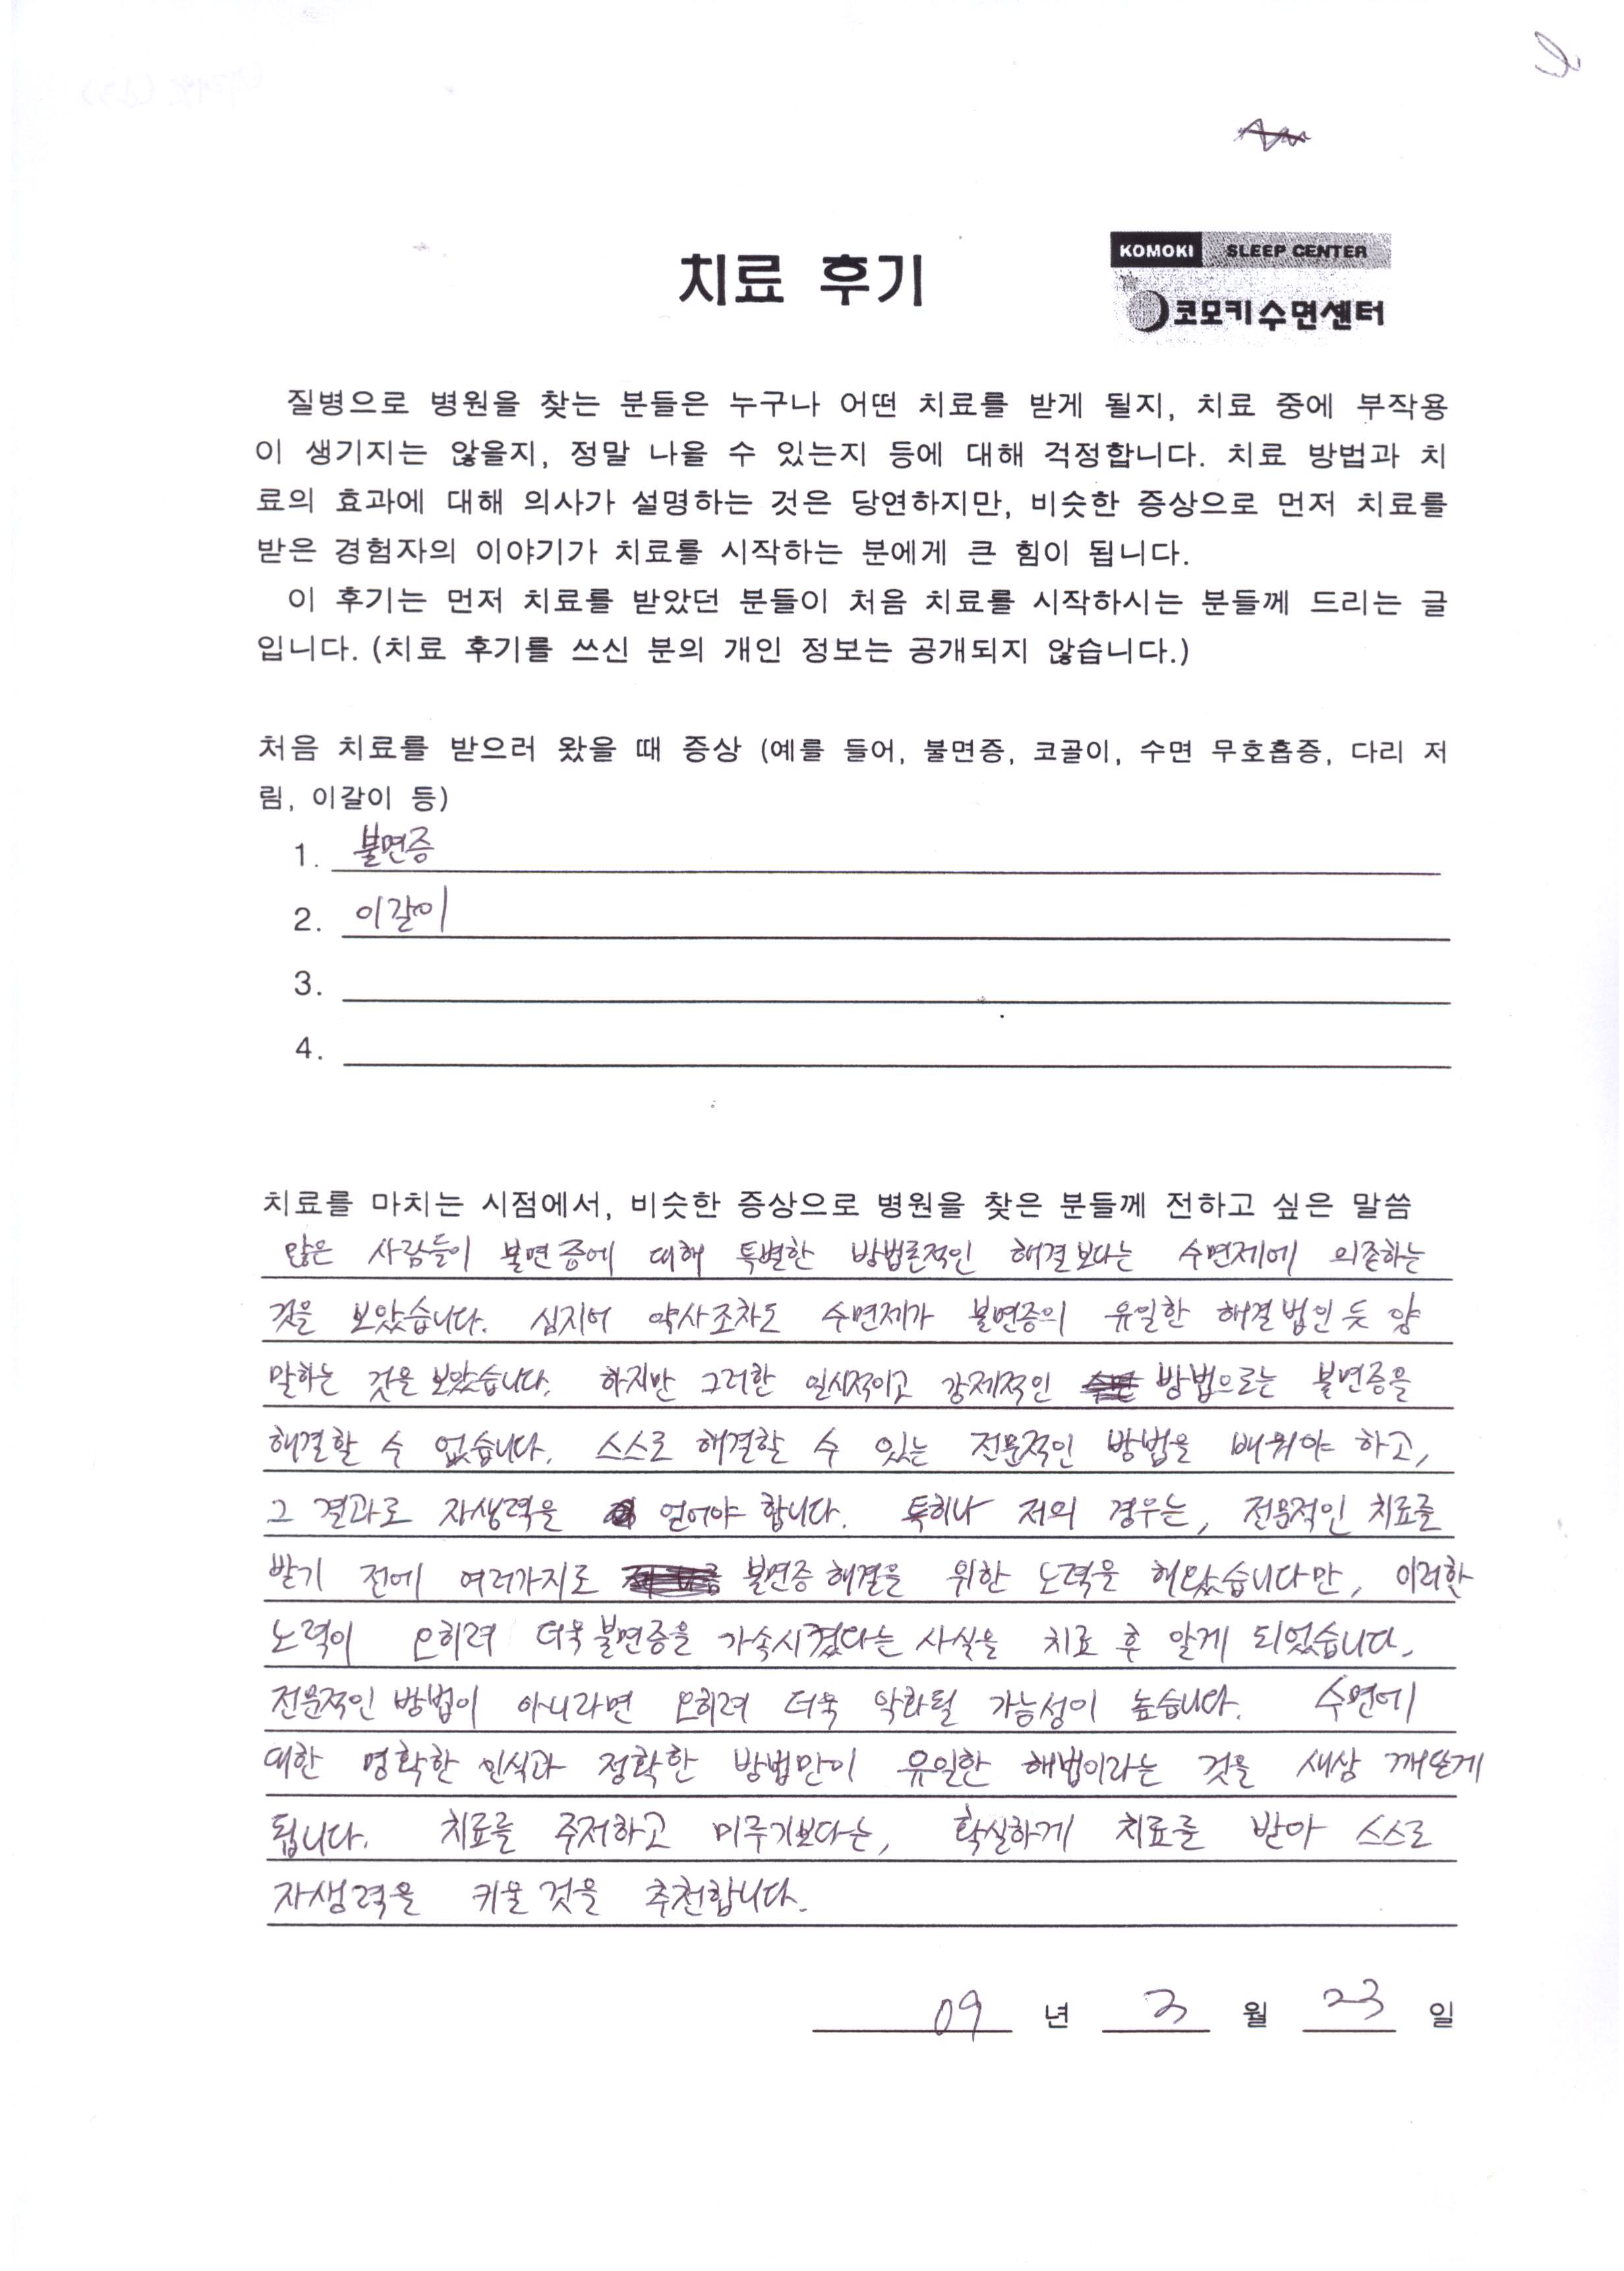 KOMOKI SLEEP CENTER
치료 후기
코모키수면센터
질병으로 병원을 찾는 분들은 누구나 어떤 치료를 받게 될지, 치료 중에 부작용
이 생기지는 않을지, 정말 나을 수 있는지 등에 대해 걱정합니다. 치료 방법과 치
료의 효과에 대해 의사가 설명하는 것은 당연하지만, 비슷한 증상으로 먼저 치료를
받은 경험자의 이야기가 치료를 시작하는 분에게 큰 힘이 됩니다.
이 후기는 먼저 치료를 받았던 분들이 처음 치료를 시작하시는 분들께 드리는 글
입니다. (치료 후기를 쓰신 분의 개인 정보는 공개되지 않습니다.)
처음 치료를 받으러 왔을 때 증상 (예를 들어, 불면증, 코골이, 수면 무호흡증, 다리 저
림, 이갈이 등)
1. 불면증
2. 이갈이
3.
4.
치료를 마치는 시점에서, 비슷한 증상으로 병원을 찾은 분들께 전하고 싶은 말씀
많은 사람들이 불면증에 대해 특별한 방법론적인 해결보다는 수면제에 의존하는
것을 보았습니다. 심지어 약사조차도 수면제가 불면증의 유일한 해결법인 듯 양
말하는 것을 보았습니다. 하지만 그러한 일시적이고 강제적인 방법으로는 불면증을
해결할 수 없습니다. 스스로 해결할 수 있는 전문적인 방법을 배워야 하고,
그 결과로 자생력을 얻어야 합니다. 특히나 저의 경우는, 전문적인 치료를
받기 전에 여러가지로 불면증 해결을 위한 노력을 해왔습니다만, 이러한
노력이 오히려 더욱 불면증을 가속시켰다는 사실을 치료 후 알게 되었습니다.
전문적인 방법이 아니라면 오히려 더욱 악화될 가능성이 높습니다. 수면에
대한 명확한 인식과 정확한 방법만이 유일한 해법이라는 것을 새삼 깨닫게
됩니다. 치료를 주저하고 미루기보다는, 확실하게 치료를 받아 스스로
자생력을 키울 것을 추천합니다.
09 년 3 월 23 일